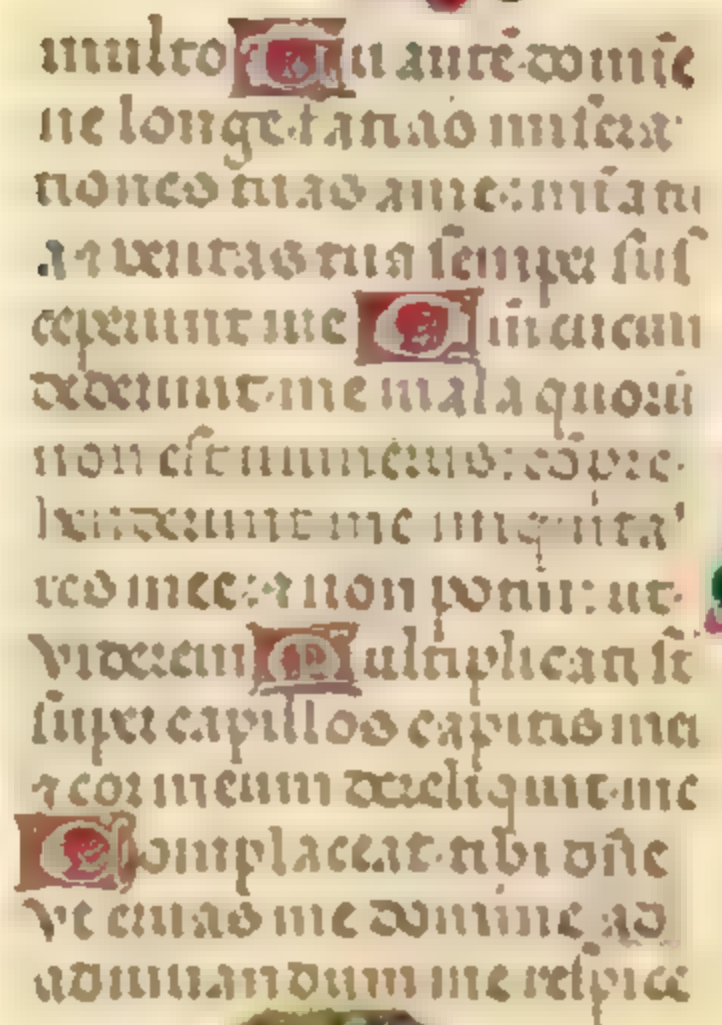 multo Tu autē domīe
ne longe facias miſera
tiones tuas a me: mīa tu
a ⁊ veritas tua ſemper ſuſ
ceperunt me Qm̄ circum
dederunt me mala quorū
non eſt numerus: cōpre
henderunt me iniquita
tes mee: ⁊ non potui ut
viderem Multiplicati ſt̄
ſuper capillos capitis mei
⁊ cor meum dereliquit me
Complaceat tibi dn̄e
vt eruas me domine ad
adiuuandum me reſpice